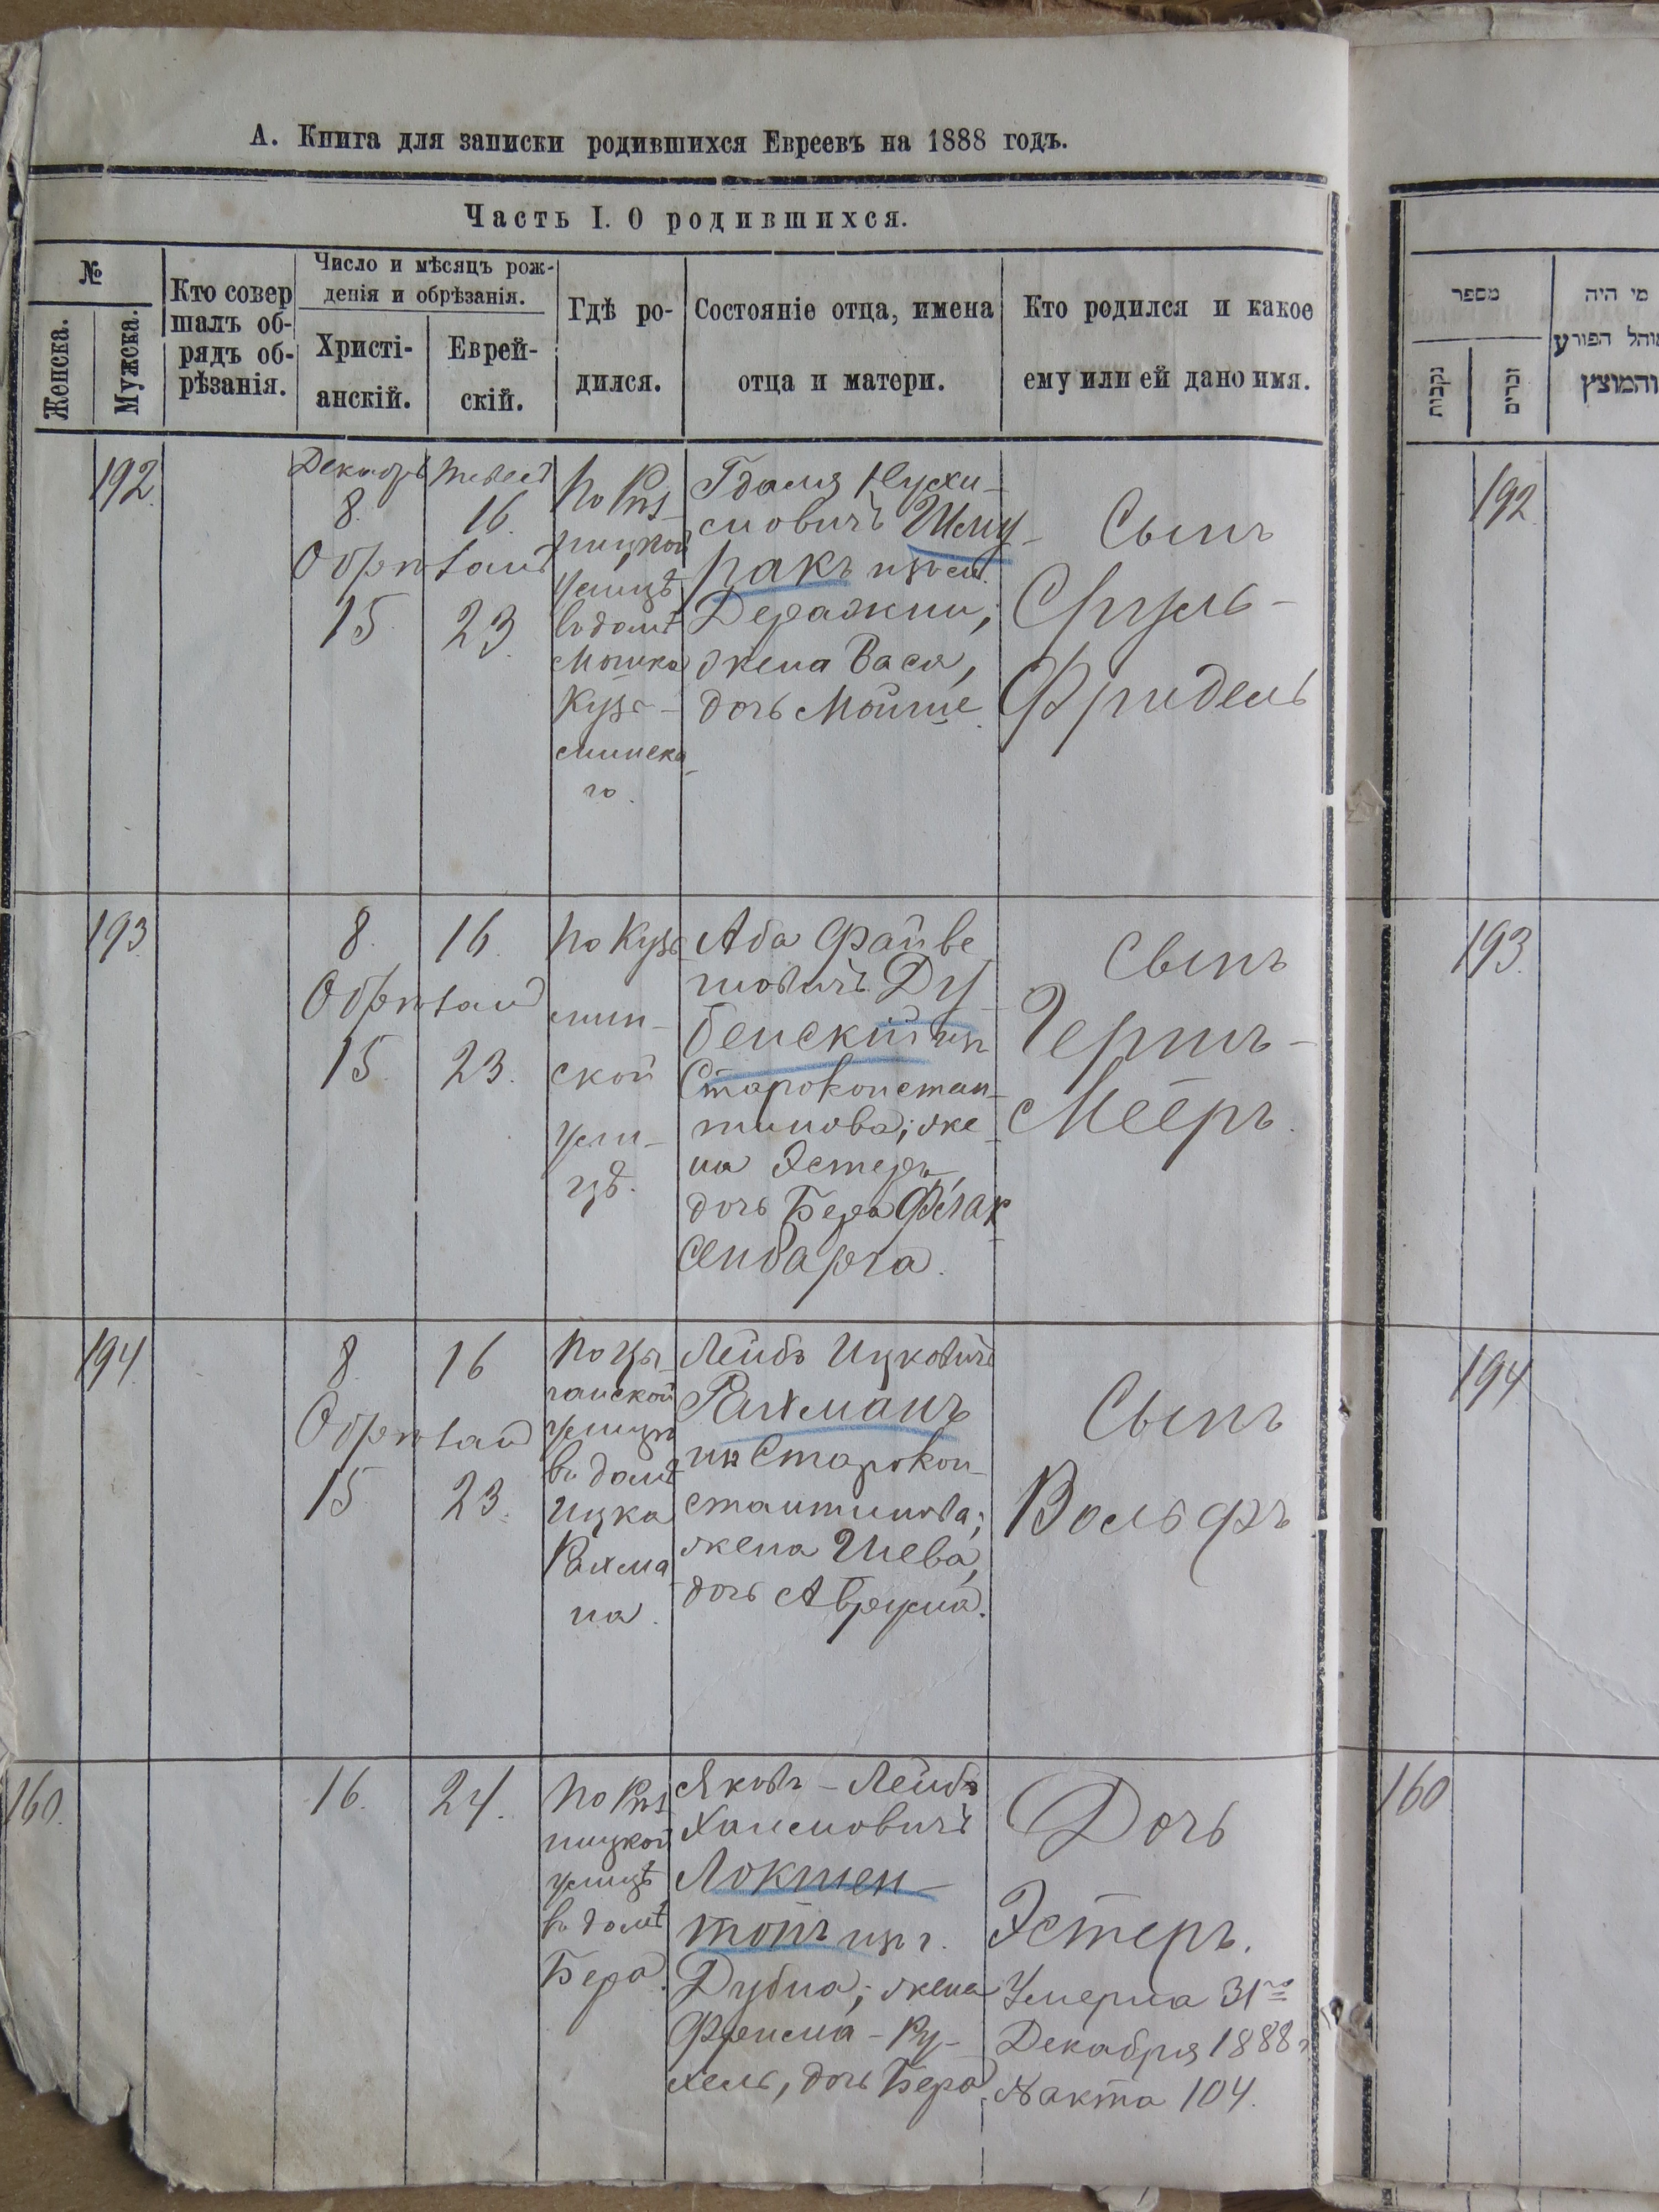 А. Книга для записки родившихся Евреевъ на 1888 годъ.
Часть I. О родившихся.
№
Женска.
Мужска.
Кто совер
шалъ об-
рядъ об-
рѣзанія.
Число и мѣсяцъ рож-
денія и обрѣзанія.
Христі-
анскій.
Еврей-
скій.
Гдѣ ро-
дился.
Состояніе отца, имена
отца и матери.
Кто родился и какое
ему или ей дано имя.
192
Декабрь
8.
Обрѣзанъ
15.
16.
23.
улицѣ
въ домѣ
Мошка
Кузь-
минска-
го.
Гдаля Нухи-
мовичъ Шму-
ракъ изъ м.
Деражни;
жена Вася,
дочь Мойше.
Сынъ
Сруль-
Фридель
193
8.
Обрѣзанъ
15.
16.
23.
По Кузь-
мин-
ской
ули-
цѣ.
Аба Файве-
ловичъ Ду-
бенскій изъ
Староконстан-
тинова; же-
на Эстеръ,
дочь Бера
Сынъ
Гершъ-
Мееръ.
194
8.
Обрѣзанъ
15.
16
23.
По Цы-
ганской
улицѣ
въ домѣ
Ицка
Рахма-
на.
Лейбъ Ицковичъ
Рахманъ
изъ Старокон-
стантинова;
жена Шева,
дочь Аврума.
Сынъ
Вольфъ
160.
16.
24.
улицѣ
въ домѣ
Бера.
Яковъ-Лейбъ
Хаимовичъ
Локшен-
топъ изъ г.
Дубна; жена
Фрейма-Ру-
хель, дочь Бера.
Дочь
Эстеръ.
Умерла 31го
Декабря 1888 г.
№ акта 104.
מספר
נקבות
זכרים
מי היה
מוהל הפורע
והמוצץ
192
193.
194
160